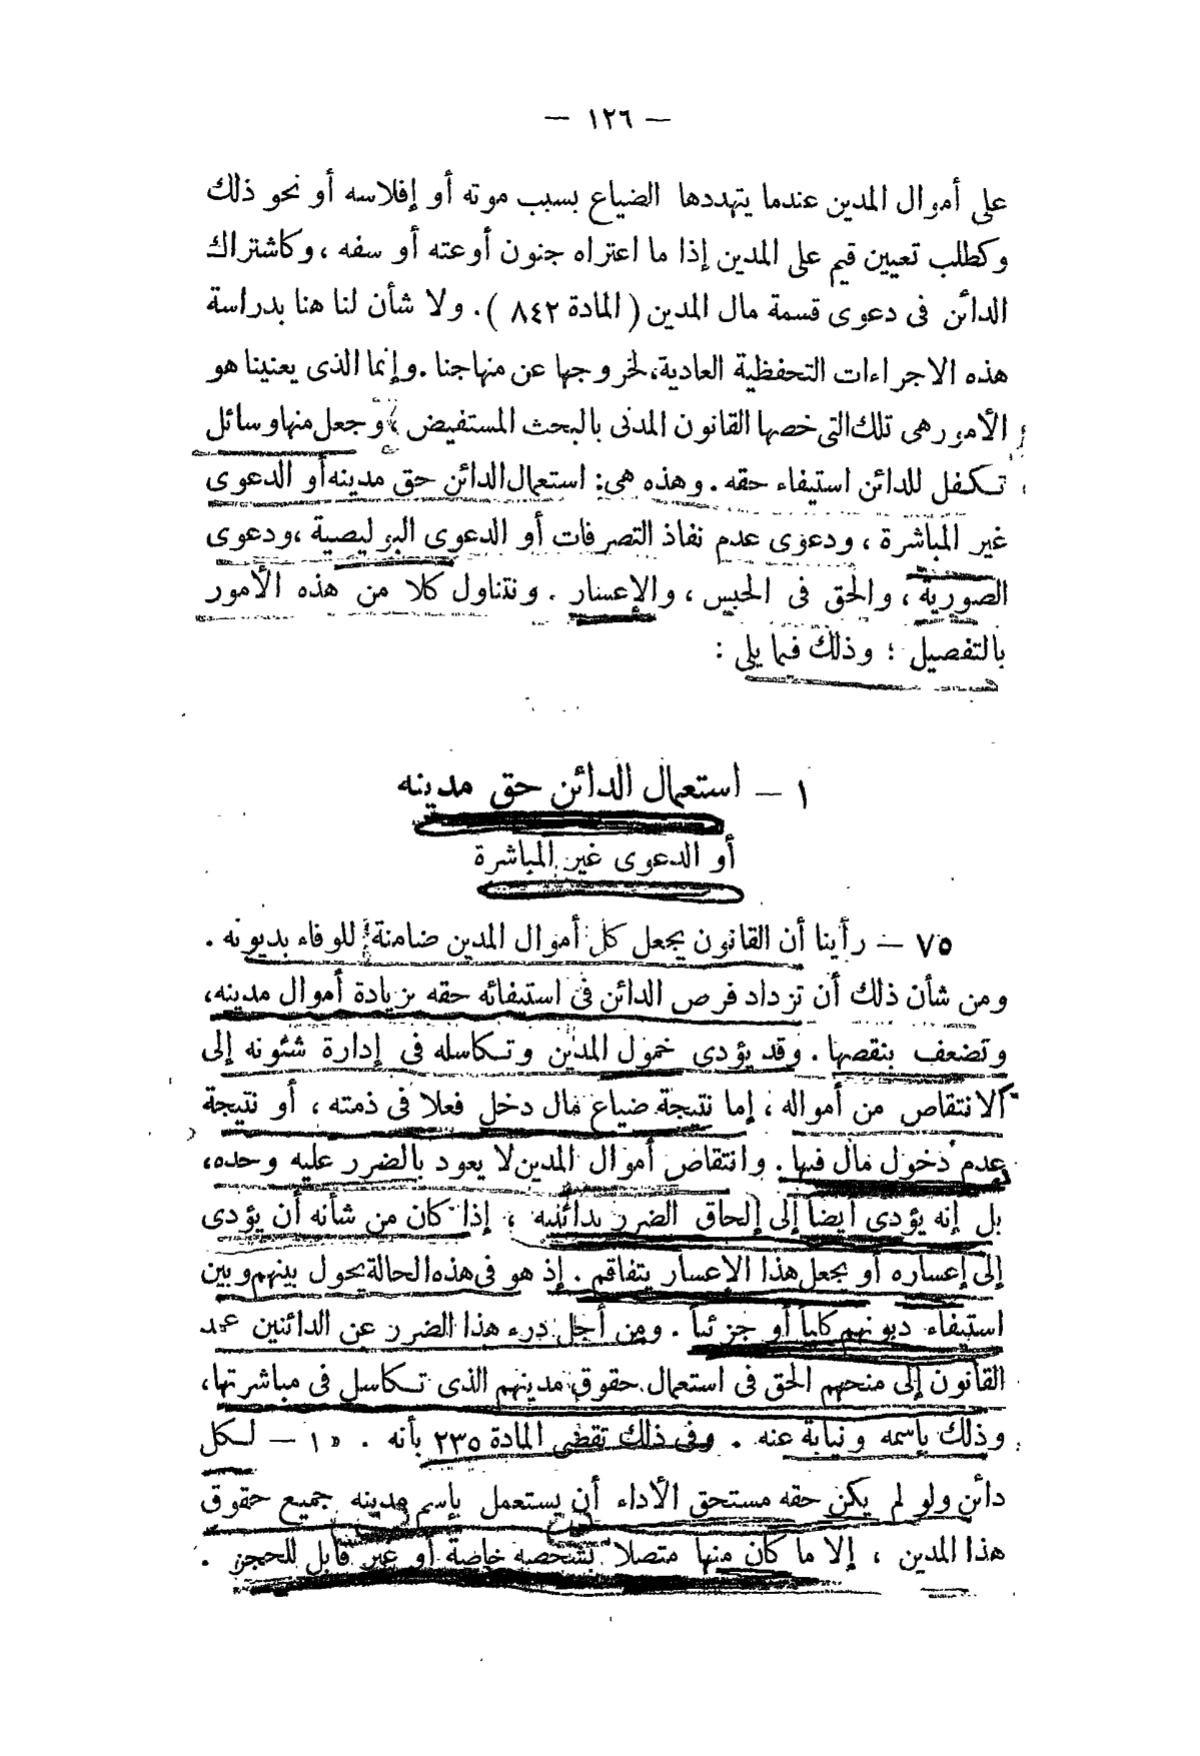 — ١٢٦ —
على أموال المدين عندما يتهددها الضياع بسبب موته أو إفلاسه أو نحو ذلك
وكطلب تعيين قيم على المدين إذا ما اعتراه جنون أوعته أو سفه ، وكاشتراك
الدائن فى دعوى قسمة مال المدين ( المادة ٨٤٢ ) . ولا شأن لنا هنا بدراسة
هذه الاجراءات التحفظية العادية، لخروجها عن منهاجنا . وإنما الذى يعنينا هو
الأمور هى تلك التى خصها القانون المدنى بالبحث المستفيض ، وجعل منها وسائل
تكفل للدائن استيفاء حقه . وهذه هى : استعمال الدائن حق مدينه أو الدعوى
غير المباشرة ، ودعوى عدم نفاذ التصرفات أو الدعوى البوليصية ، ودعوى
الصورية ، والحق فى الحبس ، والإعسار . ونتناول كلا من هذه الأمور
بالتفصيل ؛ وذلك فيما يلى :
١ — استعمال الدائن حق مدينه
أو الدعوى غير المباشرة
٧٥ — رأينا أن القانون يجعل كل أموال المدين ضامنة للوفاء بديونه .
ومن شأن ذلك أن تزداد فرص الدائن فى استيفائه حقه بزيادة أموال مدينه،
وتضعف بنقصها . وقد يؤدى خمول المدين وتكاسله فى إدارة شئونه إلى
الانتقاص من أمواله ، إما نتيجة ضياع مال دخل فعلا فى ذمته ، أو نتيجة
عدم دخول مال فيها . وانتقاص أموال المدين لا يعود بالضرر عليه وحده،
بل إنه يؤدى أيضا إلى إلحاق الضرر بدائنيه ، إذا كان من شأنه أن يؤدى
إلى إعساره أو يجعل هذا الإعسار يتفاقم . إذ هو فى هذه الحالة يحول بينهم وبين
استيفاء ديونهم كلياً أو جزئياً . ومن أجل درء هذا الضرر عن الدائنين عمد
القانون إلى منحهم الحق فى استعمال حقوق مدينهم الذى تكاسل فى مباشرتها،
وذلك باسمه ونيابة عنه . وفى ذلك تقضى المادة ٢٣٥ بأنه . « ١ — لكل
دائن ولو لم يكن حقه مستحق الأداء أن يستعمل بإسم مدينه جميع حقوق
هذا المدين ، إلا ما كان منها متصلا بشخصه خاصة أو غير قابل للحجز .